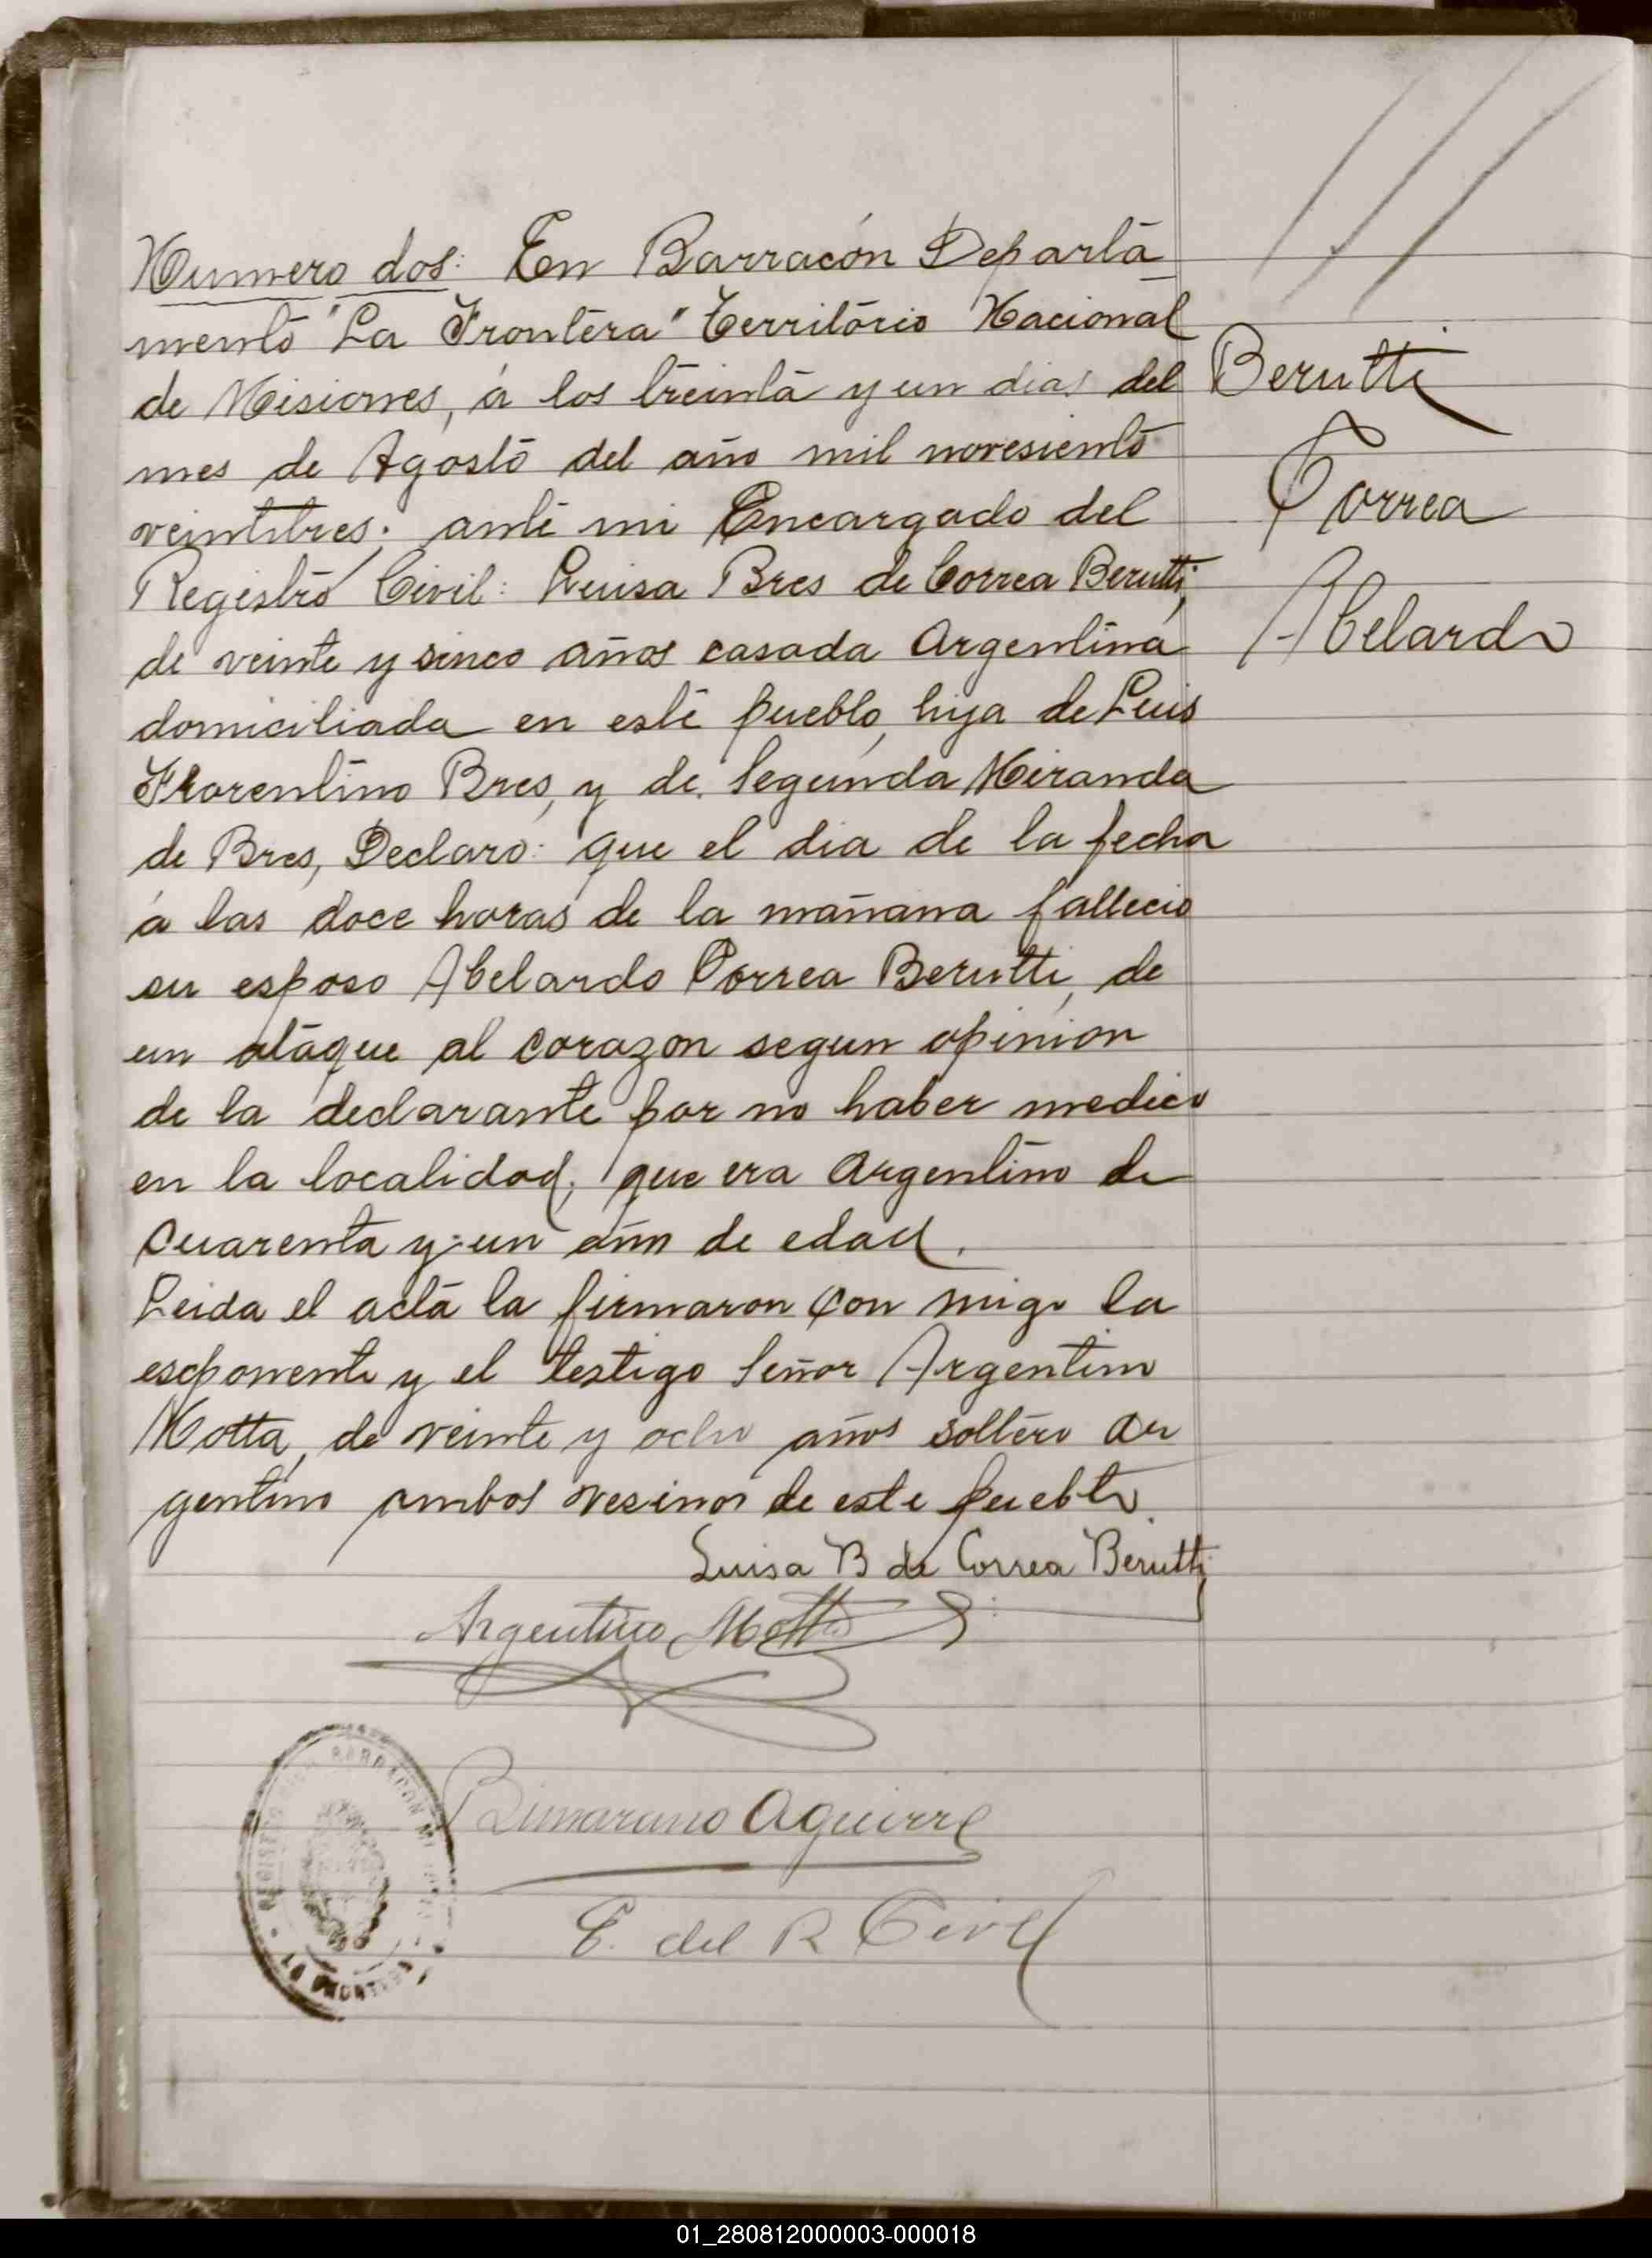 Numero dos: En Barracón Departa
mento "La Frontera" Território Nacional
de Misiones, á los treinta y un dias del
mes de Agosto del año mil novesiento
veintitres; ante mi Encargado del
Registro Civil: Luisa Bres de Correa Berutti,
de veinte y sinco años casada Argentina
domiciliada en este pueblo, hija de Luis
Florentino Bres, y de Segunda Miranda
de Bres, Declaro: que el dia de la fecha
á las doce horas de la mañana fallecio
su esposo Abelardo Correa Berutti, de
un ataque al corazon segun opinion
de la declarante por no haber medico
en la localidad; que era Argentino de
cuarenta y un año de edad.
Leida el acta la firmaron con migo la
esponente y el testigo Señor Argentino
Motta, de veinte y ocho años soltero ar
gentino ambos vesinos de este pueblo.
Luisa B de Correa Berutti
Argentino Motta
Aguirre
E. del R Civil
Berutti
Correa
Abelardo
REGISTRO BARRACON
LA FRONTERA
01_280812000003-000018